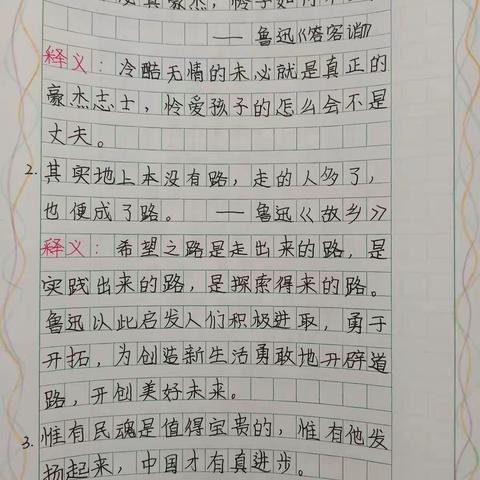 真豪杰，怜子如何
——鲁迅《答客诮》
释义：冷酷无情的未必就是真正的
豪杰志士，怜爱孩子的怎么会不是
丈夫。
2.其实地上本没有路，走的人多了，
也便成了路。——鲁迅《故乡》
释义：希望之路是走出来的路，是
实践出来的路，是探索得来的路。
鲁迅以此启发人们积极进取，勇于
开拓，为创造新生活勇敢地开辟道
路，开创美好未来。
3.惟有民魂是值得宝贵的，惟有他发
扬起来，中国才有真进步。